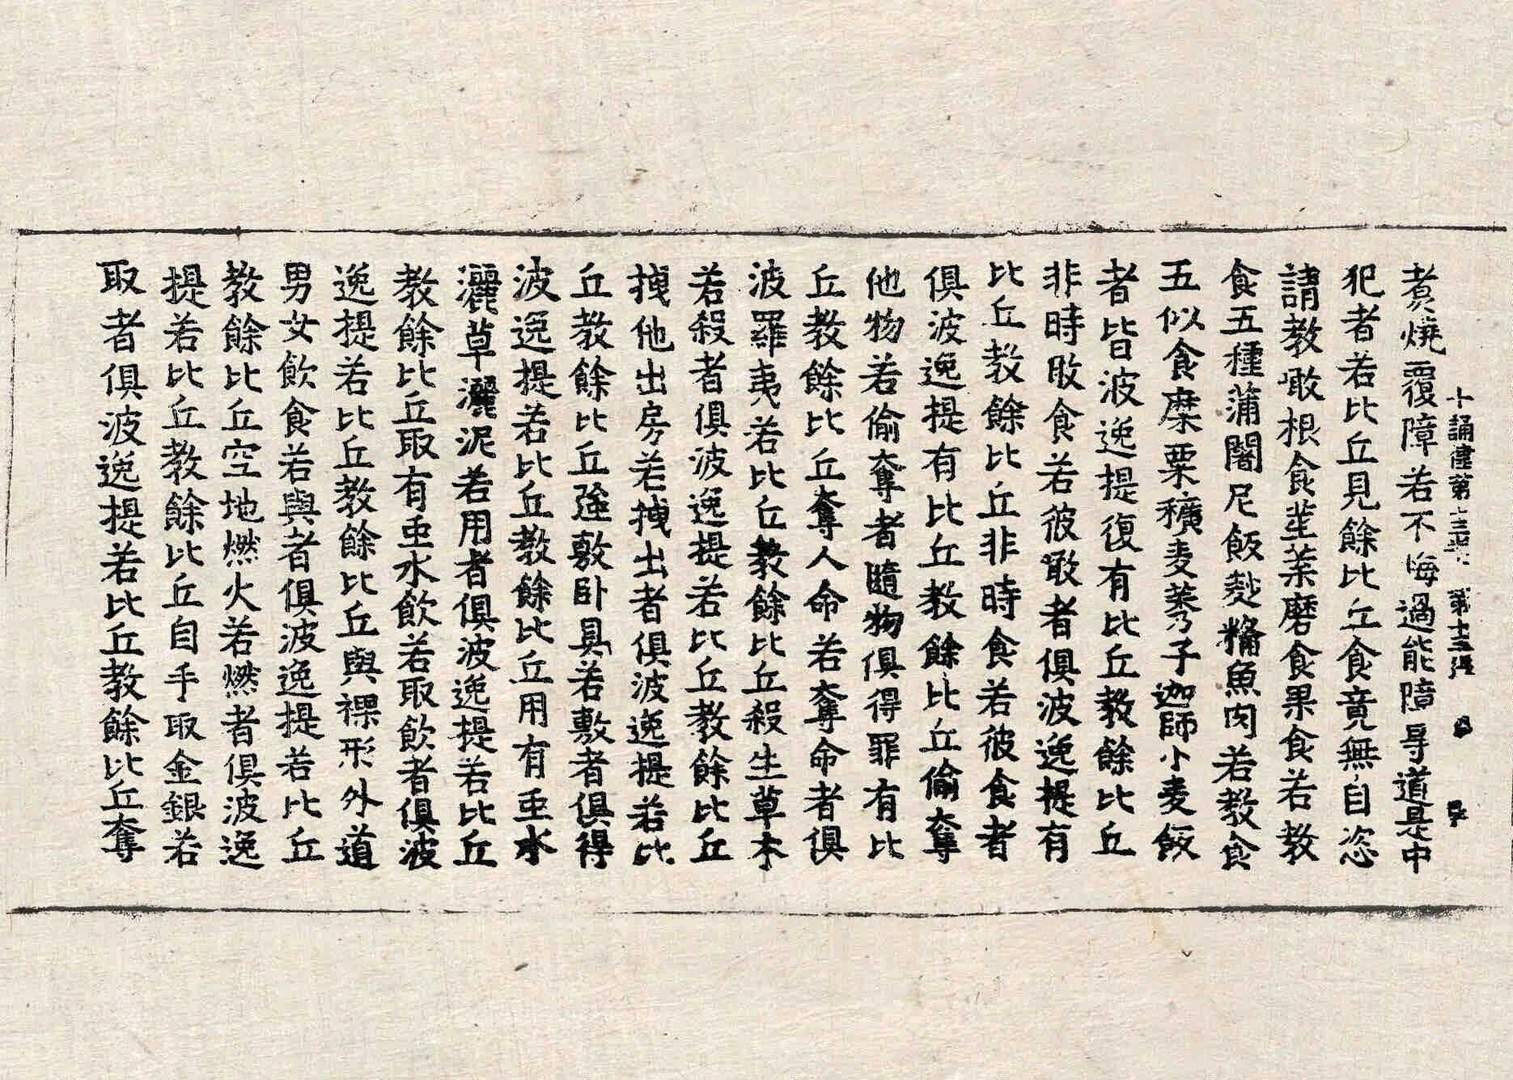 煮燒覆障若不悔過能障㝵道是中
犯者若比丘見餘比丘食竟無自恣
請教噉根食莖葉磨食果食若教
食五種蒲闍尼飯麨糒魚肉若教食
五似食糜粟穬麦莠子迦師小麦飯
者皆波逸提復有比丘教餘比丘
非時噉食若彼噉者俱波逸提有
比丘教餘比丘非時食若彼食者
俱波逸提有比丘教餘比丘偷奪
他物若偷奪者隨物俱得罪有比
丘教餘比丘奪人命若奪命者俱
波羅夷若比丘教餘比丘殺生草木
若殺者俱波逸提若比丘教餘比丘
拽他出房若拽出者俱波逸提若比
丘教餘比丘強敷卧具若敷者俱得
波逸提若比丘教餘比丘用有虫水
灑草灑泥若用者俱波逸提若比丘
教餘比丘取有虫水飲若取飲者俱波
逸提若比丘教餘比丘與裸形外道
男女飲食若與者俱波逸提若比丘
教餘比丘空地燃火若燃者俱波逸
提若比丘教餘比丘自手取金銀若
取者俱波逸提若比丘教餘比丘奪
十誦律第 第十三張